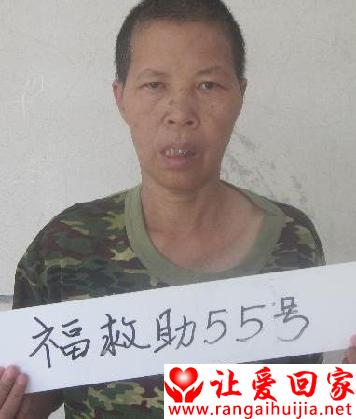 福救助55号
让爱回家
www.rangaihuijia.net